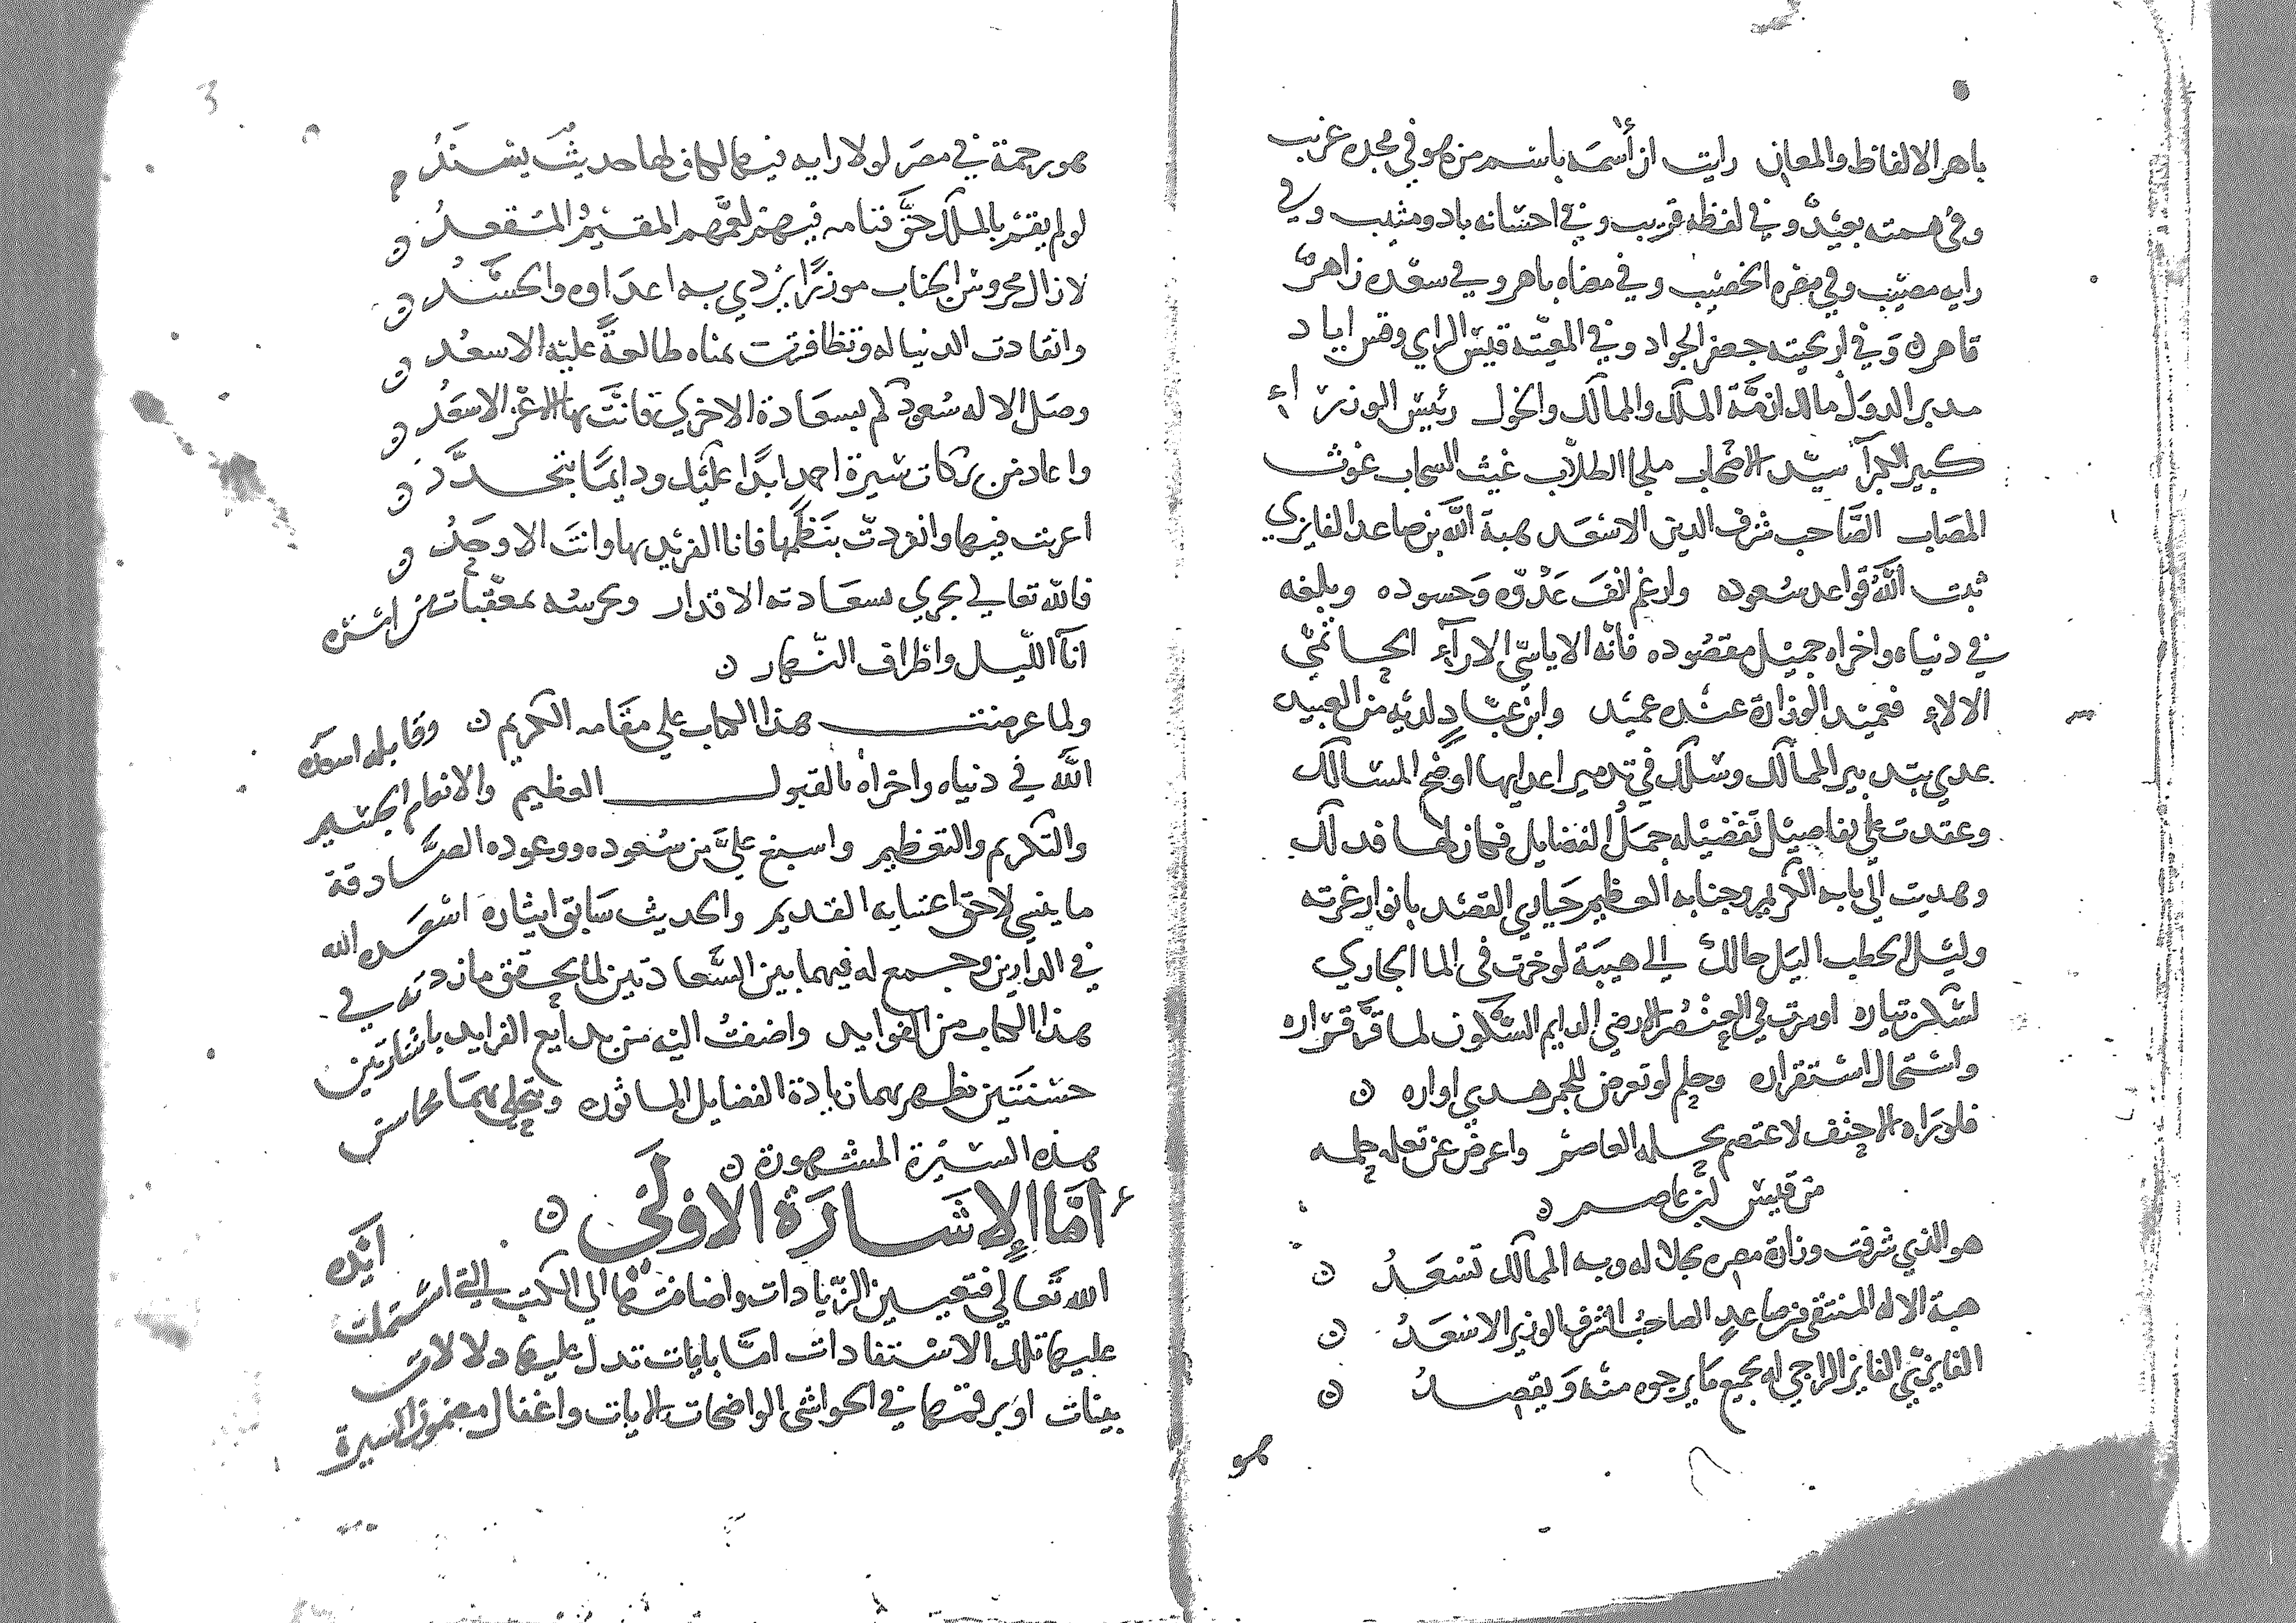 باهر الالفاظ والمعاني رايت ان أسمه باسم من هو في مجده غريب
وفي همته بعيد وفي لفظه قريب وفي احسانه باد ومثيب وفي
رايه مصيب وفي مقره الخصيب وفي مضاه باهر وفي سعده زاهر
قاهر وفي اريحيته جعفر الجواد وفي المعيته قيس الراي وقس اياد
مدبر الدول مالك ازمة الملك والممالك والخول رئيس الوزراء
كبير الكبرآ سيد الاصحاب ملجا الطلاب غيث السحاب غوث
المصاب الصاحب شرف الدين الاسعد هبة الله بن صاعد الفايزي
ثبت الله قواعد سعوده وارغم انف عدوه وحسوده وبلغه
في دنياه واخراه جميل مقصوده فانه الاياسي الارآء الحاتمي
الالاء فعميد الوزارة عنده عميد وابن عباد لديه من العبيد
عدي بتدبير الممالك وسلك في تدمير اعدايها اوضح المسالك
وعقدت على تفاصيل تفضيله جمل الفضايل فما زلها فدالك
وهديت الى بابه الكريم وجنابه العظيم حياري القصد بانوار غرته
وليل الخطب اليل حالك الي هيبة لو خرت في الما الجاري
لسكن تياره او سرت في العنصر الارضي الدايم السكون لما قر قراره
واستحال استقراره وحلم لو تعرض للجمر هدي اواره ن
فلو راه الاحنف لاعتصم بحلمه العاصم واعرض عن تعلمه حلمه
من قيس بن عاصم ن
هو الذي شرفت وزارة مصره بجلاله وبه الممالك تسعد ن
هبة الاله المنتقى من صاعد الصاحب الشرف الوزير الاسعد ن
الفايزي الفايز الراجي له بجميع ما يرجوه منه ويقصد ن
هو
3
هو رحمة في مصر لولا رايه فيها لكان لها حديث يسند م
لو لم يقم بالملك حق قيامه فيهم لعمهم المقيم المقعد ن
لا زال محروس الجناب موزرا يردي به اعداوه والحسد ن
وانقادت الدنيا له وتظافرت بمناه طالعة عليه الاسعد ن
وصل الاله سعودكم بسعادة الاخري فانت بها الاغر الاسعد ن
واعاد من بركات سيرة احمد ابدا عليك ودايما يتجدد ن
اعربت فيها وانفردت بنظمها فانا الفريد بها وانت الاوحد ن
فالله تعالي يجري بسعادته الاقدار ويحرسه بمعقبات من امره
انآ الليل واطراف النهار ن
ولما عرضت هذا الكتاب علي مقامه الكريم ن وقابله اسعده
الله في دنياه واخراه بالقبول العظيم والانعام الجسيم
والتكريم والتعظيم واسبغ علي من سعوده ووعوده الصادقة
ما ينبي لاحق اعتنايه القديم والحديث سابق ايثاره اسعده الله
في الدارين وجمع له فيهما بين السعادتين لما يحقق ما زدته في
هذا الكتاب من الفوايد واضفت اليه من بدايع الفرايد باشارتين
حسنتين تظهر بهما زيادة الفضايل الماثوره وتتجلي بهما محاسن
هذه السيرة المشهورة ن
أما الإشارة الاولي ن ايدك
الله تعالي فتعيين الزيادات واضافتها الي الكتب التي اشتملت
عليها تلك الاستفادات اما بايات تدل عليها دلالات
بينات او برقمتها في الحواشي الواضحات الايات واغفال السيرة